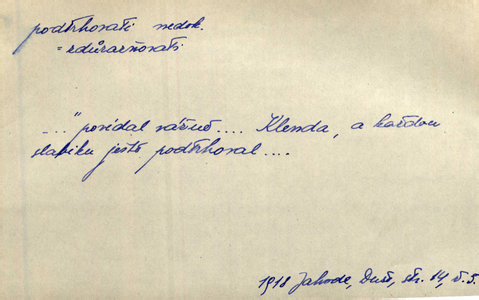 podtrhovati nedok.
= zdůrazňovati
..." povídal vážně .... Klenda, a každou
slabiku ještě podtrhoval ....
1918 Jahoda, Duše, str. 14, ř. 5.